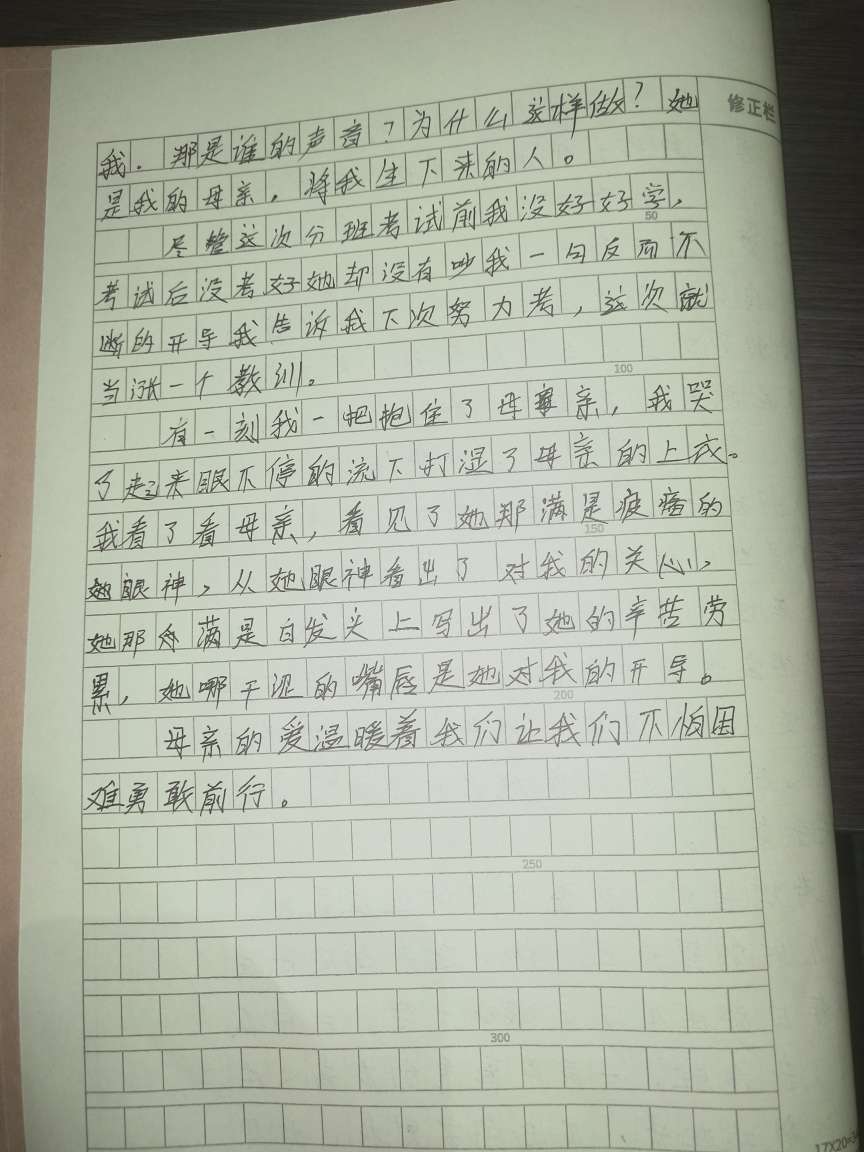 修正栏
我．那是谁的声音？为什么这样做？她
是我的母亲，将我生下来的人。
尽管这次分班考试前我没好好学，
50
考试后没考好她却没有吵我一句反而不
断的开导我告诉我下次努力考，这次就
当涨一个教训。
100
有一刻我一把抱住了母亲，我哭
了起来眼不停的流下打湿了母亲的上衣。
我看了看母亲，看见了她那满是疲痛的
150
她眼神，从她眼神看出了对我的关心，
她那满是白发头上写出了她的辛苦劳
累，她哪干泥的嘴唇是她对我的开导。
200
母亲的爱温暖着我们让我们不怕困
难勇敢前行。
250
300